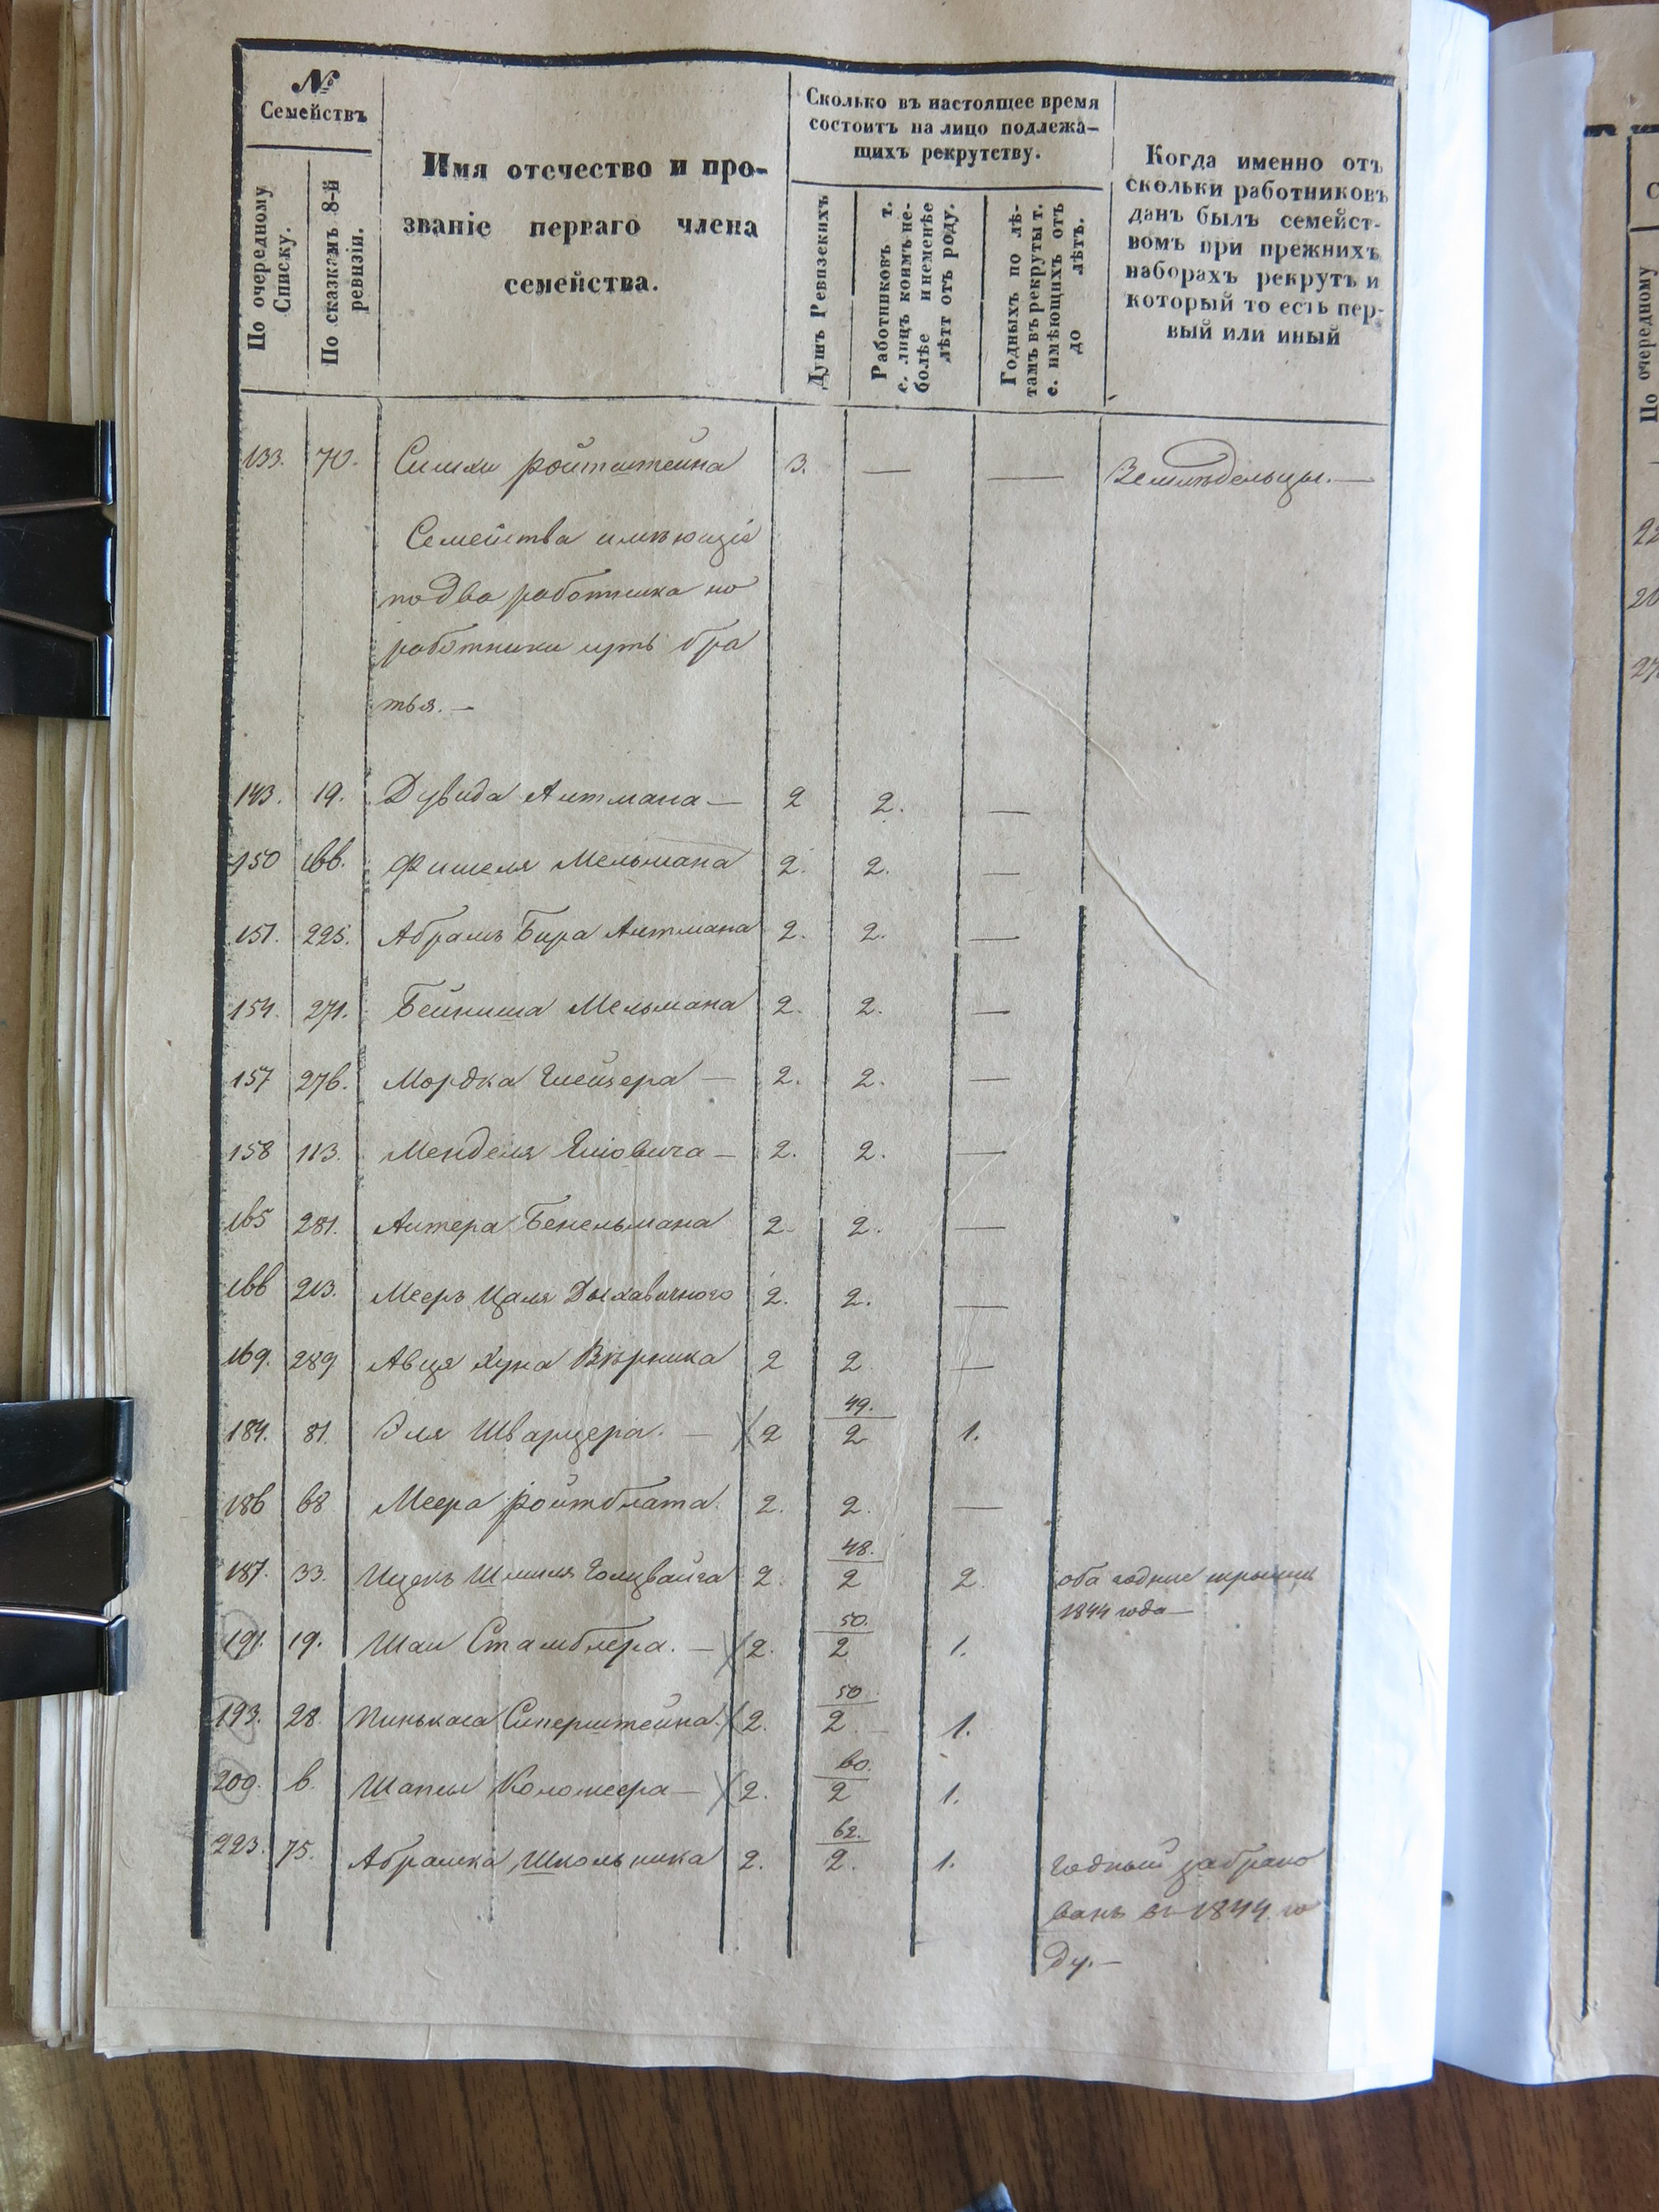 №
Семействъ
По очередному Списку.
По сказкамъ 8-й ревизіи.
Имя отечество и про-
званіе перваго члена
семейства.
Сколько въ настоящее время
состоитъ на лицо подлежа-
щихъ рекрутству.
Душъ Ревизскихъ
Работниковъ т.
е. лицъ коимъ не-
болѣе и неменѣе
лѣтт отъ роду.
Годныхъ по лѣ-
тамъ въ рекруты т.
е. имѣющихъ отъ
до лѣтъ.
Когда именно отъ
скольки работниковъ
данъ былъ семейст-
вомъ при прежнихъ
наборахъ рекрутъ и
который то есть пер-
вый или иный
133. 70. Симхи Ройтштейна 3. — — Земледельцы. —
Семейства имѣющія
по два работника но
работники суть бра
тья. —
143. 19. Дувида Алтмана — 2 2. —
150 166. Фишеля Мельмана 2. 2. —
151. 225. Абрамъ Бера Алтмана 2. 2. —
154. 271. Бейниша Мельмана 2. 2. —
157 276. Мордка Глейзера — 2. 2. —
158 113. Менделя — 2. 2. —
165 281. Алтера Бекельмана 2. 2. —
166 213. Мееръ Цаля 2. 2. —
169. 289 Авця Хуна Вѣрника 2 2 —
49.
184. 81. Эля Шварцера. — 2 2 1.
186 68 Меера Ройтблата. 2. 2. —
48.
187. 33. Ицекъ Шмиля Голцвайга 2. 2 2. оба годные
1844 года —
50.
191. 19. Шаи Стамблера. — 2. 2 1.
50
193. 28. Пинькаса Силерштейна. 2. 2. 1.
60.
200. 6. Шапсы Коломеера — 2. 2 1.
62.
223. 75. Абрамка Школьника 2. 2. 1. годный забрако
ванъ въ 1844 го
ду. —
По очередному